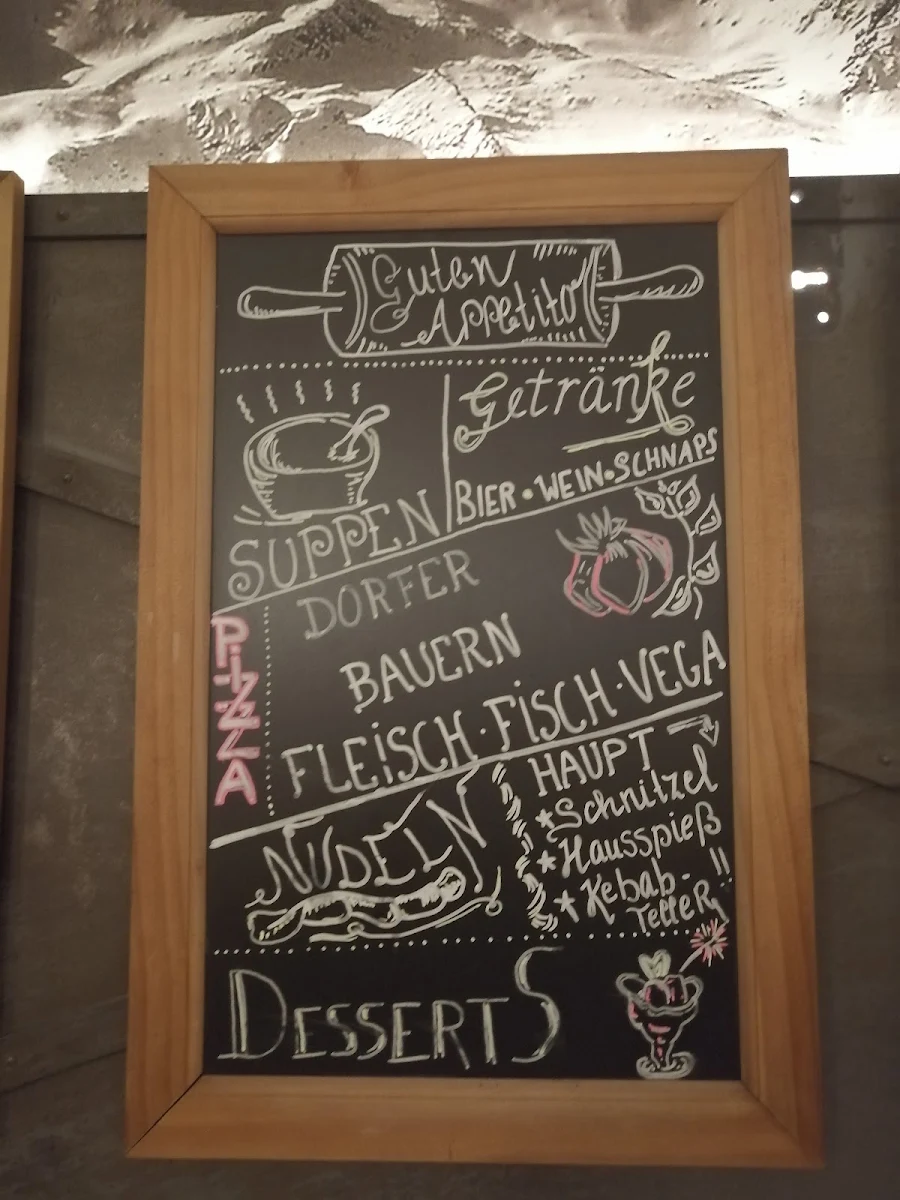 Guten
Appetito
SUPPEN
Getränke
BIER • WEIN • SCHNAPS
PIZZA
DORFER
BAUERN
FLEISCH · FISCH · VEGA
NUDELN
HAUPT
*Schnitzel
*Hausspieß
*Kebab-
TelleR!!
DESSERTS